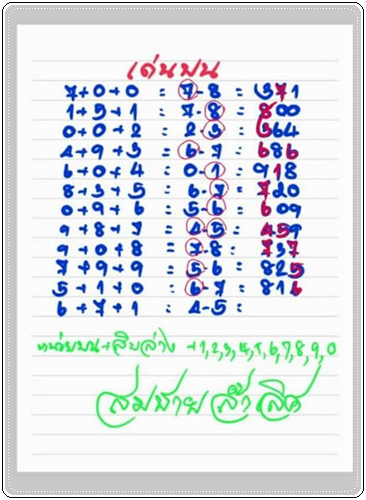 เด่นบน
7+0+0 = 7-8 = 371
1+9+1 = 7-8 = 800
0+0+2 = 2-3 = 364
4+9+3 = 6-7 = 686
6+0+4 = 0-1 = 918
8+3+5 = 6-7 = 720
0+9+6 = 5-6 = 609
9+8+7 = 4-5 = 459
9+0+8 = 7-8 = 737
7+9+9 = 5-6 = 825
5+1+0 = 6-7 = 816
6+7+1 = 4-5 =
หน่วยบน+สิบล่าง +1,2,3,4,5,6,7,8,9,0
สมชาย